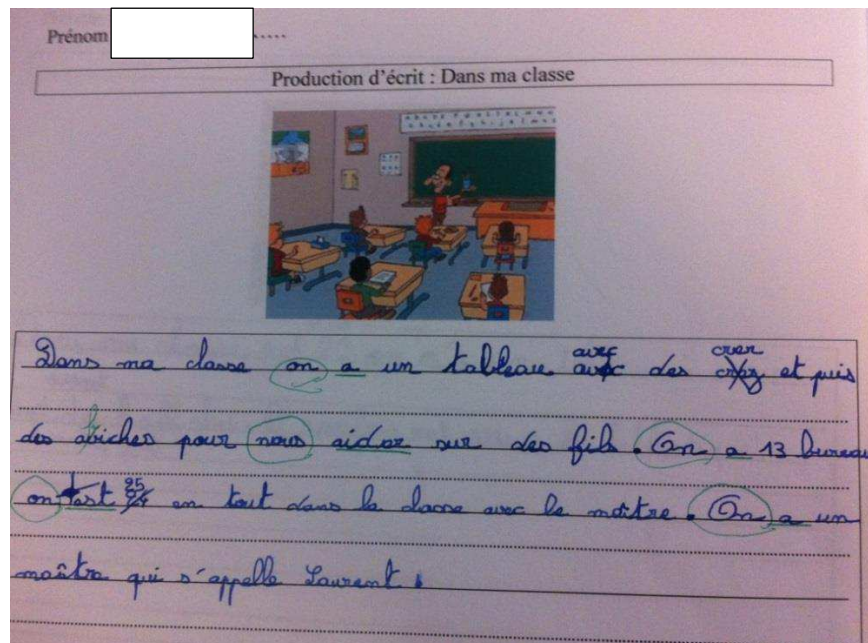 Prénom .....
Production d'écrit : Dans ma classe
Dans ma classe on a un tableau avec des crer et puis
des afiches pour nous aider sur des fils. On a 13 bureau
on est 25 en tout dans la classe avec le maître. On a un
maître qui s'appelle Laurent.